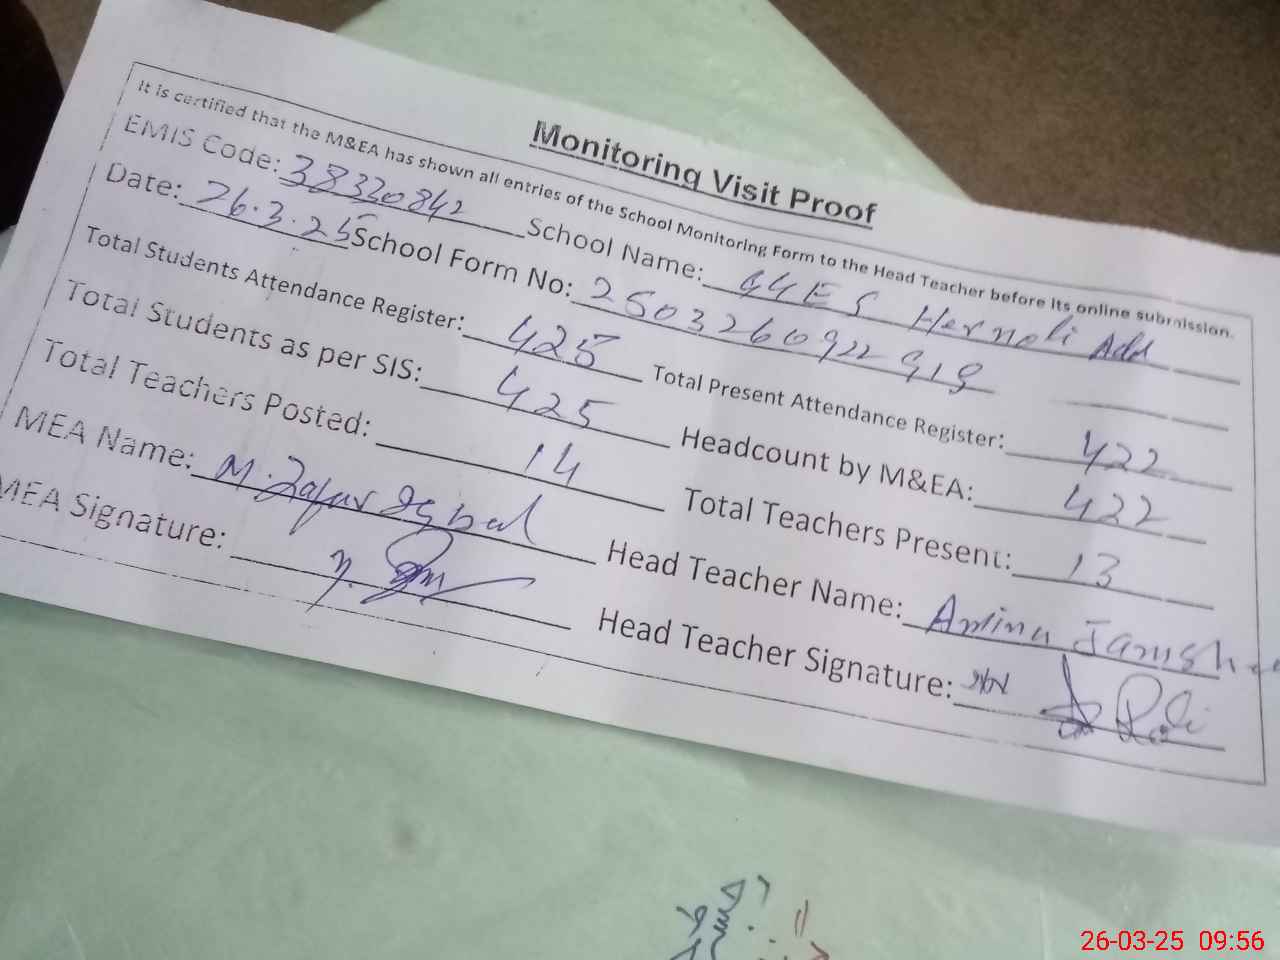 Monitoring Visit Proof
It is certified that the M&EA has shown all entries of the School Monitoring Form to the Head Teacher before its online submission.
EMIS Code: 38330842 School Name: GGES Hernoli Add
Date: 26.3.25 School Form No: 2503260922919
Total Students Attendance Register: 425 Total Present Attendance Register: 422
Total Students as per SIS: 425 Headcount by M&EA: 422
Total Teachers Posted: 14 Total Teachers Present: 13
MEA Name: M. Zafar Iqbal Head Teacher Name: Amina
MEA Signature: Head Teacher Signature:
26-03-25 09:56